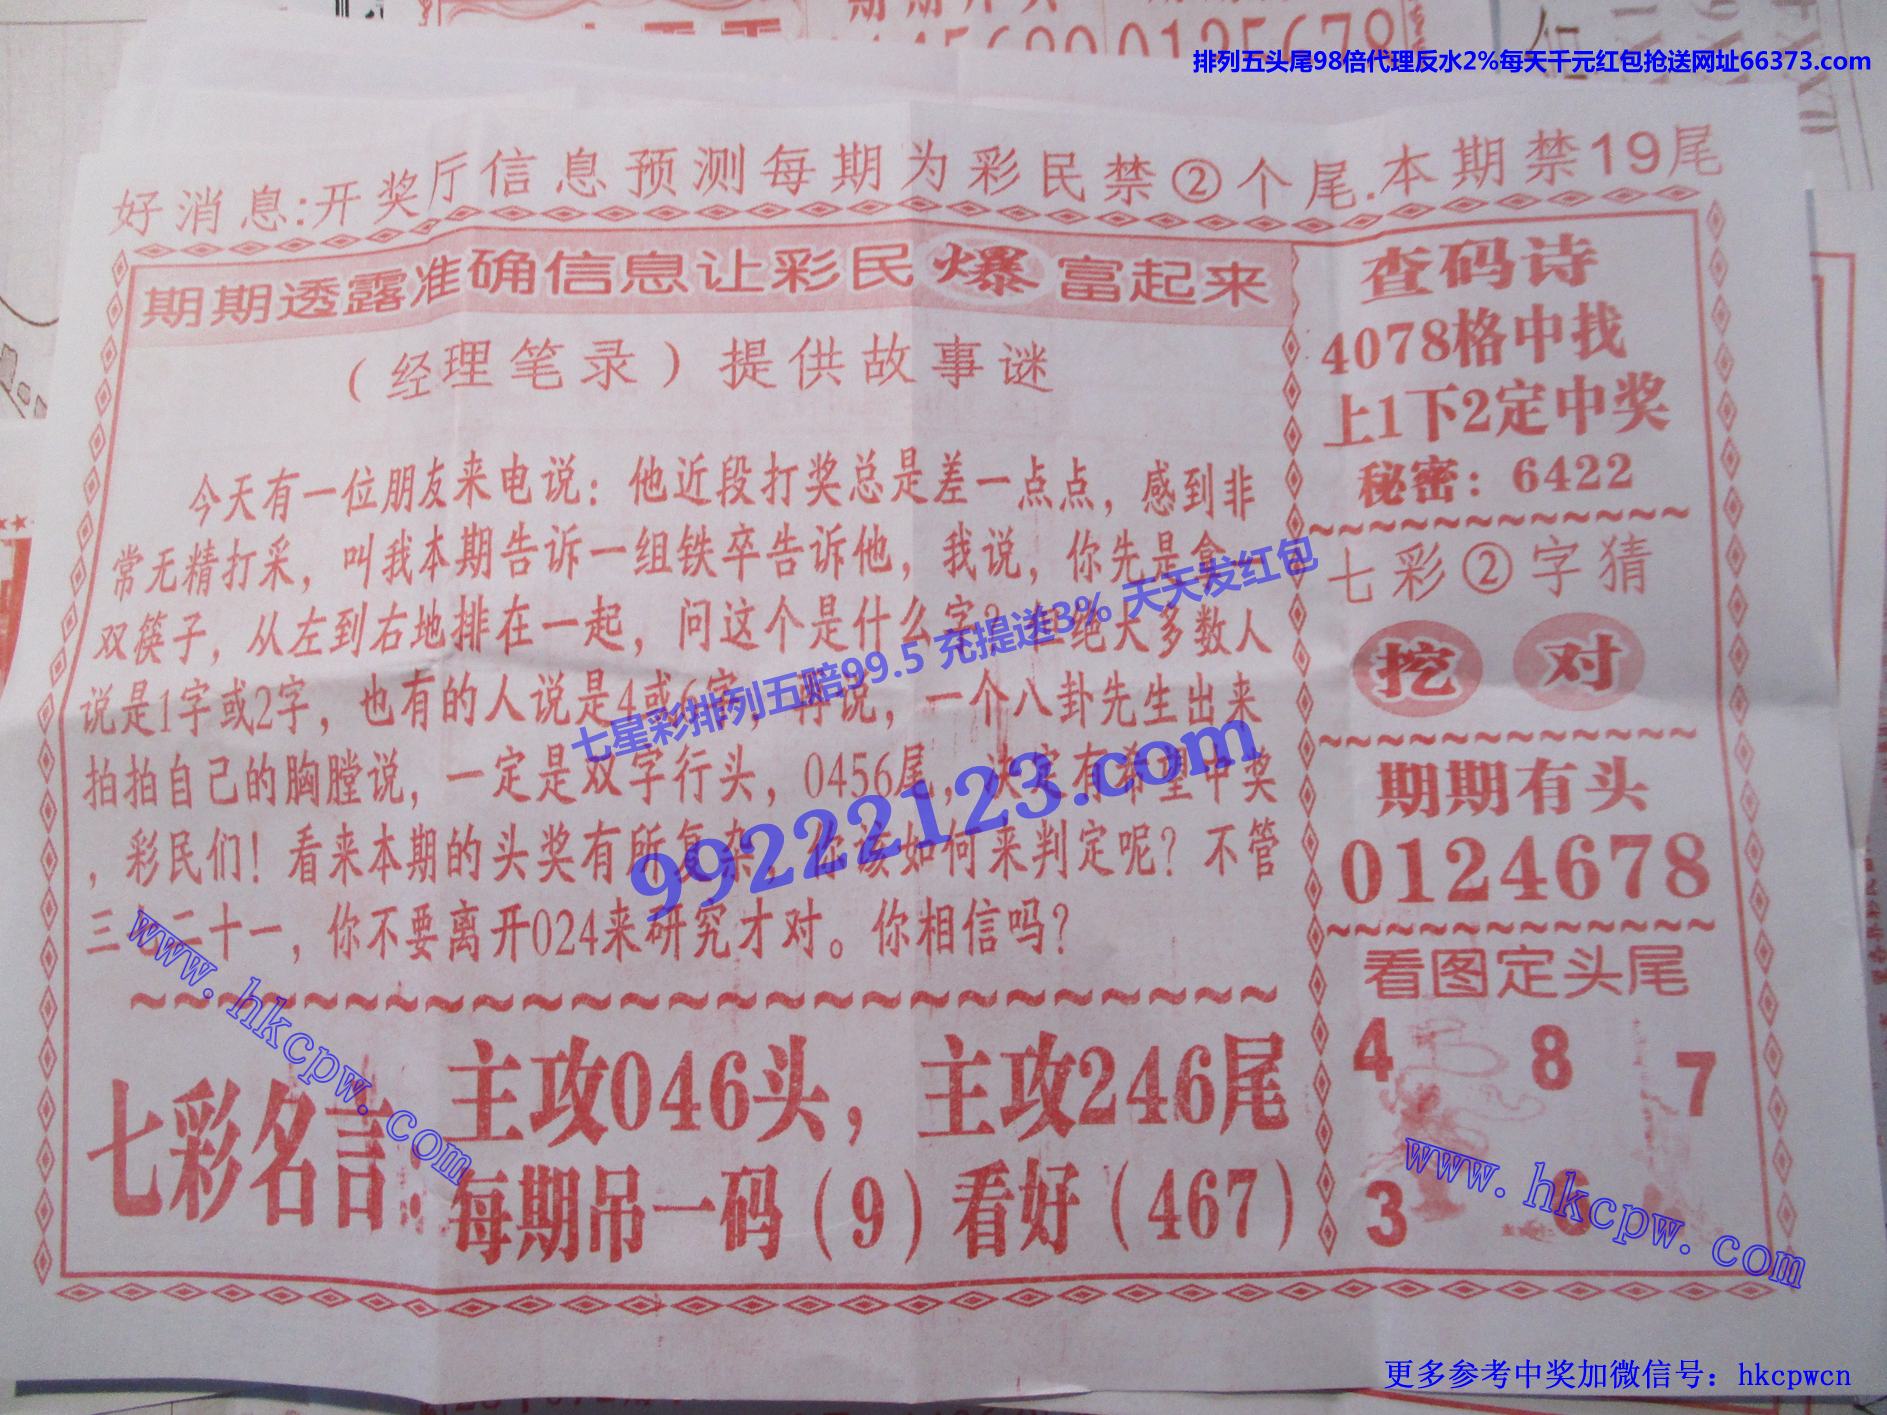 排列五头尾98倍代理反水2%每天千元红包抢送网址66373.com
好消息:开奖厅信息预测每期为彩民禁②个尾.本期禁19尾
期期透露准确信息让彩民爆富起来
（经理笔录）提供故事谜
今天有一位朋友来电说：他近段打奖总是差一点点，感到非
常无精打采，叫我本期告诉一组铁卒告诉他，我说，你先是拿一
双筷子，从左到右地排在一起，问这个是什么字？但绝大多数人
说是1字或2字，也有的人说是4或6字，再说，一个八卦先生出来
拍拍自己的胸膛说，一定是双字行头，0456尾，决定有希望中奖
，彩民们！看来本期的头奖有所复杂，你该如何来判定呢？不管
三七二十一，你不要离开024来研究才对。你相信吗？
七彩名言:
主攻046头，主攻246尾
每期吊一码（9）看好（467）
查码诗
4078格中找
上1下2定中奖
秘密：6422
七彩②字猜
挖 对
期期有头
0124678
看图定头尾
4 8 7
3 6
七星彩排列五赔99.5 充提送3% 天天发红包
99222123.com
www.hkcpw.com
www.hkcpw.com
更多参考中奖加微信号：hkcpwcn